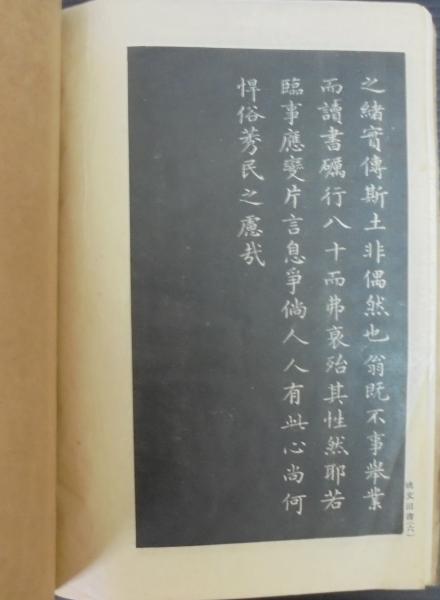 之緒實傳斯土非偶然也翁既不事舉業
而讀書礪行八十而弗衰殆其性然耶若
臨事應變片言息爭倘人人有此心尚何
悍俗莠民之慮哉
姚文田書(六)